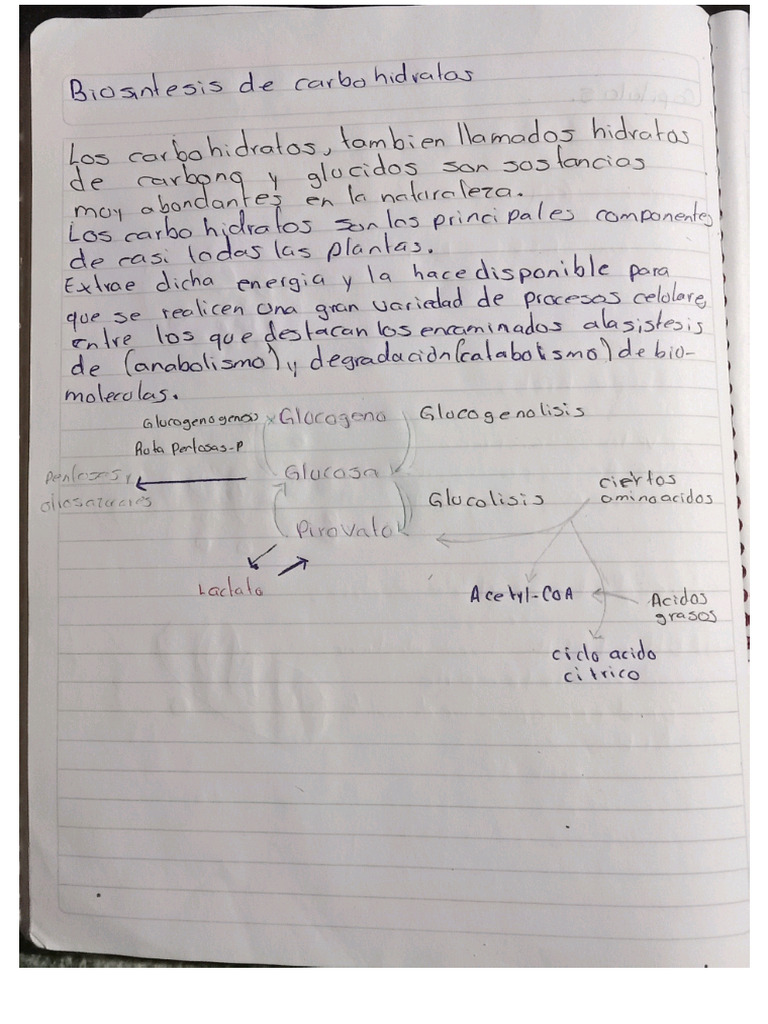 Biosintesis de carbohidratos
Los carbohidratos, tambien llamados hidratos
de carbono y glucidos son sustancias
muy abundantes en la naturaleza.
Los carbohidratos son los principales componentes
de casi todas las plantas.
Extrae dicha energia y la hace disponible para
que se realicen una gran variedad de procesos celulare
entre los que destacan los encaminados a la sistesis
de (anabolismo) y degradación (catabolismo) de bio-
moleculas.
Glucogenogenesis Glucogeno Glucogenolisis
Ruta Pentosas-P
Pentosas y Glucosa ciertos
Glucolisis aminoacidos
Pirovato
Lactato Acetyl-CoA Acidos
grasos
ciclo acido
citrico